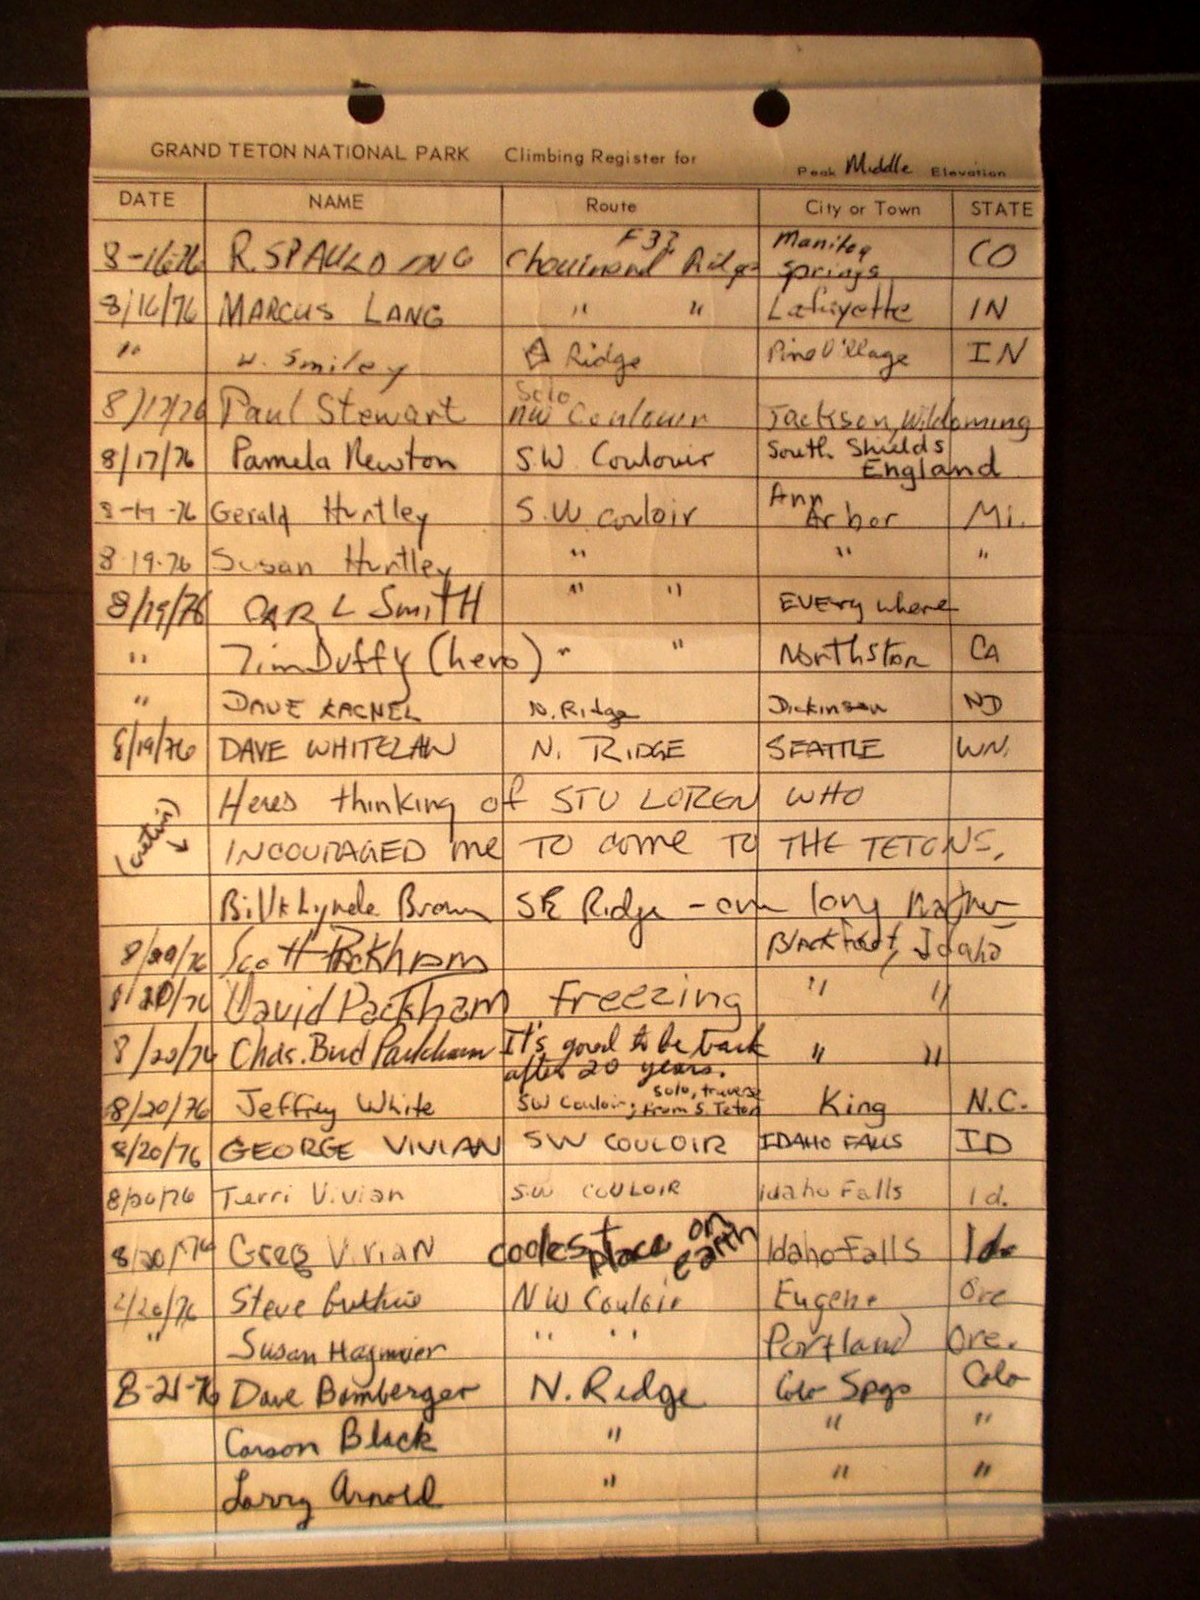 GRAND TETON NATIONAL PARK Climbing Register for Peak Middle Elevation
DATE NAME Route City or Town STATE
8-16-76 R. SPAULDING Chouinard Ridge Manitou Springs CO
8/16/76 MARCUS LANG " " Lafayette IN
" W. Smiley Ridge Pine Village IN
8/17/76 Paul Stewart Solo NW Coulouir Jackson, Wildoming
8/17/76 Pamela Newton S.W. Coulouir South Shields England
8-19-76 Gerald Hurtley S.W couloir Ann Arbor Mi.
8-19-76 Susan Hurtley " " "
8/19/76 CARL SmITH " " EVERywhere
" Tim Duffy (hero) " " Northstar CA
" DAVE KACHEL N. Ridge Dickinson ND
8/19/76 DAVE WHITELAW N. RIDGE SEATTLE WN.
Heres thinking of STU LOREN WHO
INCOURAGED me TO come TO THE TETONS.
Bill & Lynda Brown SE Ridge - our long
8/20/76 Scott Packham Blackfoot, Idaho
8/20/76 David Packham Freezing " "
8/20/76 Chas. Bud Packham It's good to be back after 20 years. " "
8/20/76 Jeffrey White SW Couloir; solo, traverse from S. Teton King N.C.
8/20/76 GEORGE VIVIAN SW COULOIR IDAHO FALLS ID
8/20/76 Terri Vivian S.W COULOIR Idaho Falls Id.
8/20/76 Greg ViviaN coolest place on earth Idaho Falls Id.
8/20/76 Steve Guthrie NW Couloir Eugene Ore
" Susan Hagmeier " " Portland Ore.
8-21-76 Dave Bamberger N. Ridge Colo Spgs Colo
Carson Black " " "
Larry Arnold " " "